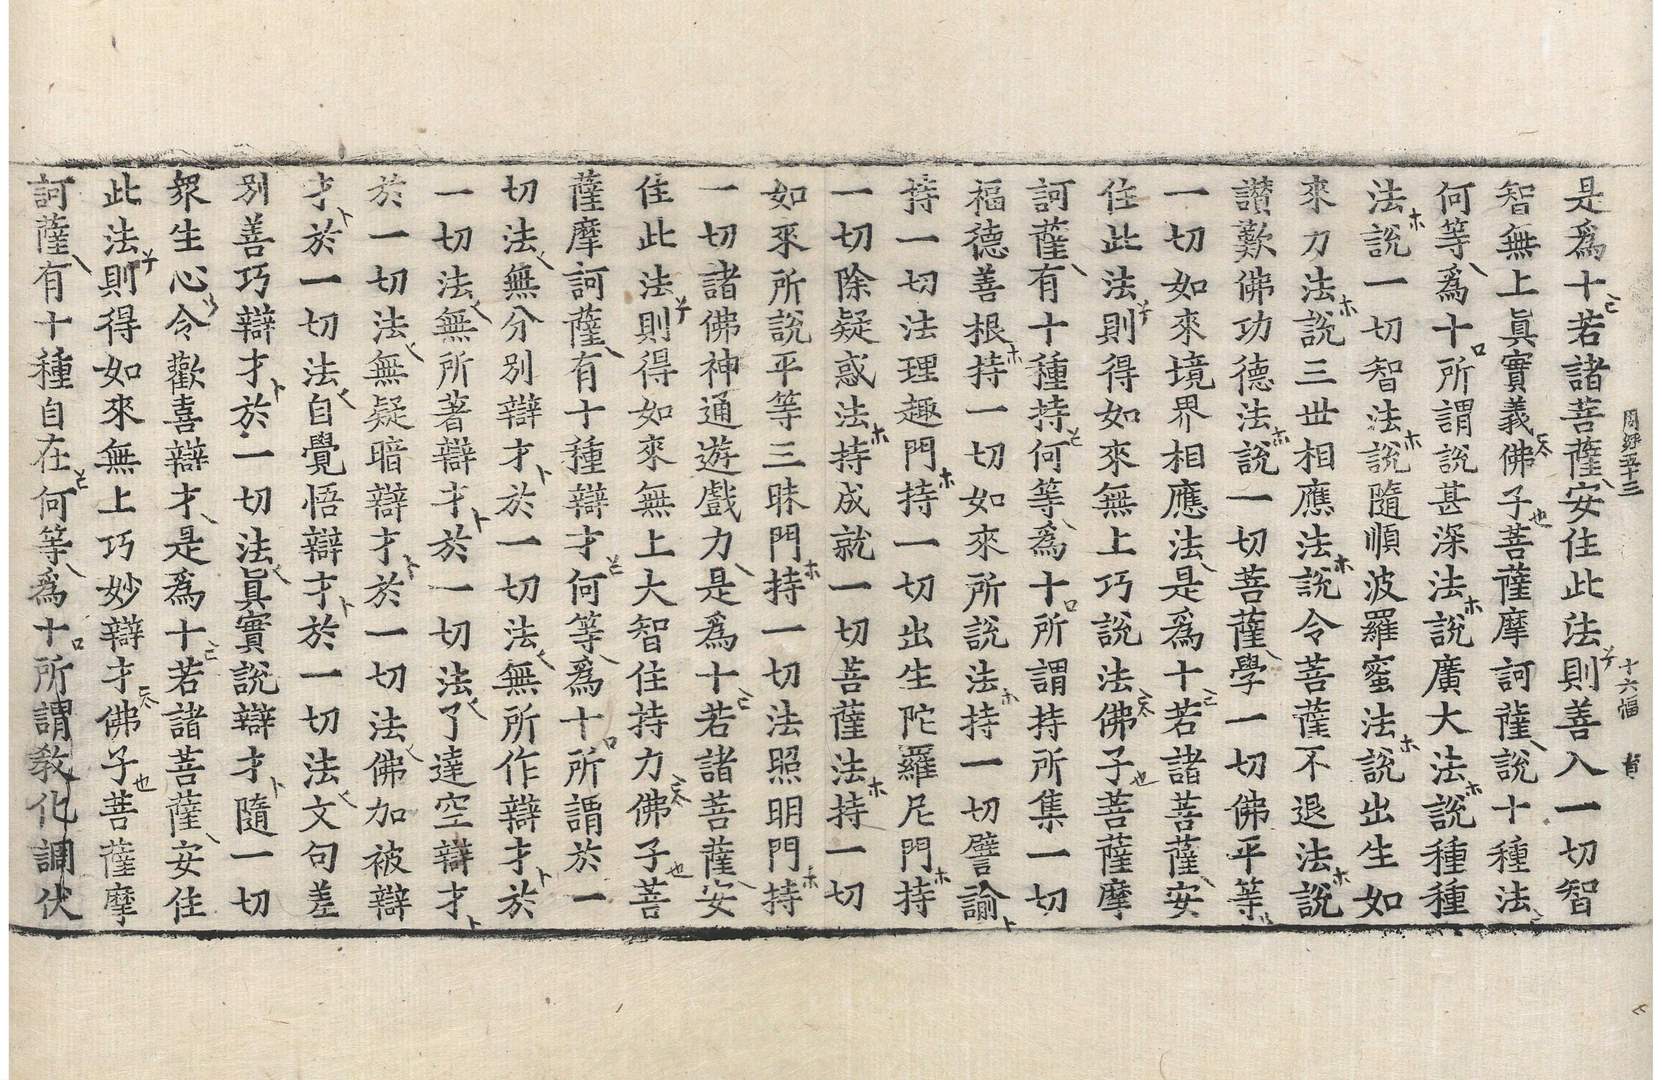 周經五十三　十六幅
是爲十若諸菩薩安住此法則善入一切智
智無上眞實義佛子菩薩摩訶薩說十種法
何等爲十所謂說甚深法說廣大法說種種
法說一切智法說隨順波羅蜜法說出生如
來力法說三世相應法說令菩薩不退法說
讃歎佛功德法說一切菩薩學一切佛平等
一切如來境界相應法是爲十若諸菩薩安
住此法則得如來無上巧說法佛子菩薩摩
訶薩有十種持何等爲十所謂持所集一切
福德善根持一切如來所說法持一切譬諭
持一切法理趣門持一切出生陀羅尼門持
一切除疑惑法持成就一切菩薩法持一切
如來所說平等三昧門持一切法照明門持
一切諸佛神通遊戲力是爲十若諸菩薩安
住此法則得如來無上大智住持力佛子菩
薩摩訶薩有十種辯才何等爲十所謂於一
切法無分別辯才於一切法無所作辯才於
一切法無所著辯才於一切法了達空辯才
於一切法無疑暗辯才於一切法佛加被辯
才於一切法自覺悟辯才於一切法文句差
別善巧辯才於一切法眞實說辯才隨一切
衆生心令歡喜辯才是爲十若諸菩薩安住
此法則得如來無上巧妙辯才佛子菩薩摩
訶薩有十種自在何等爲十所謂教化調伏